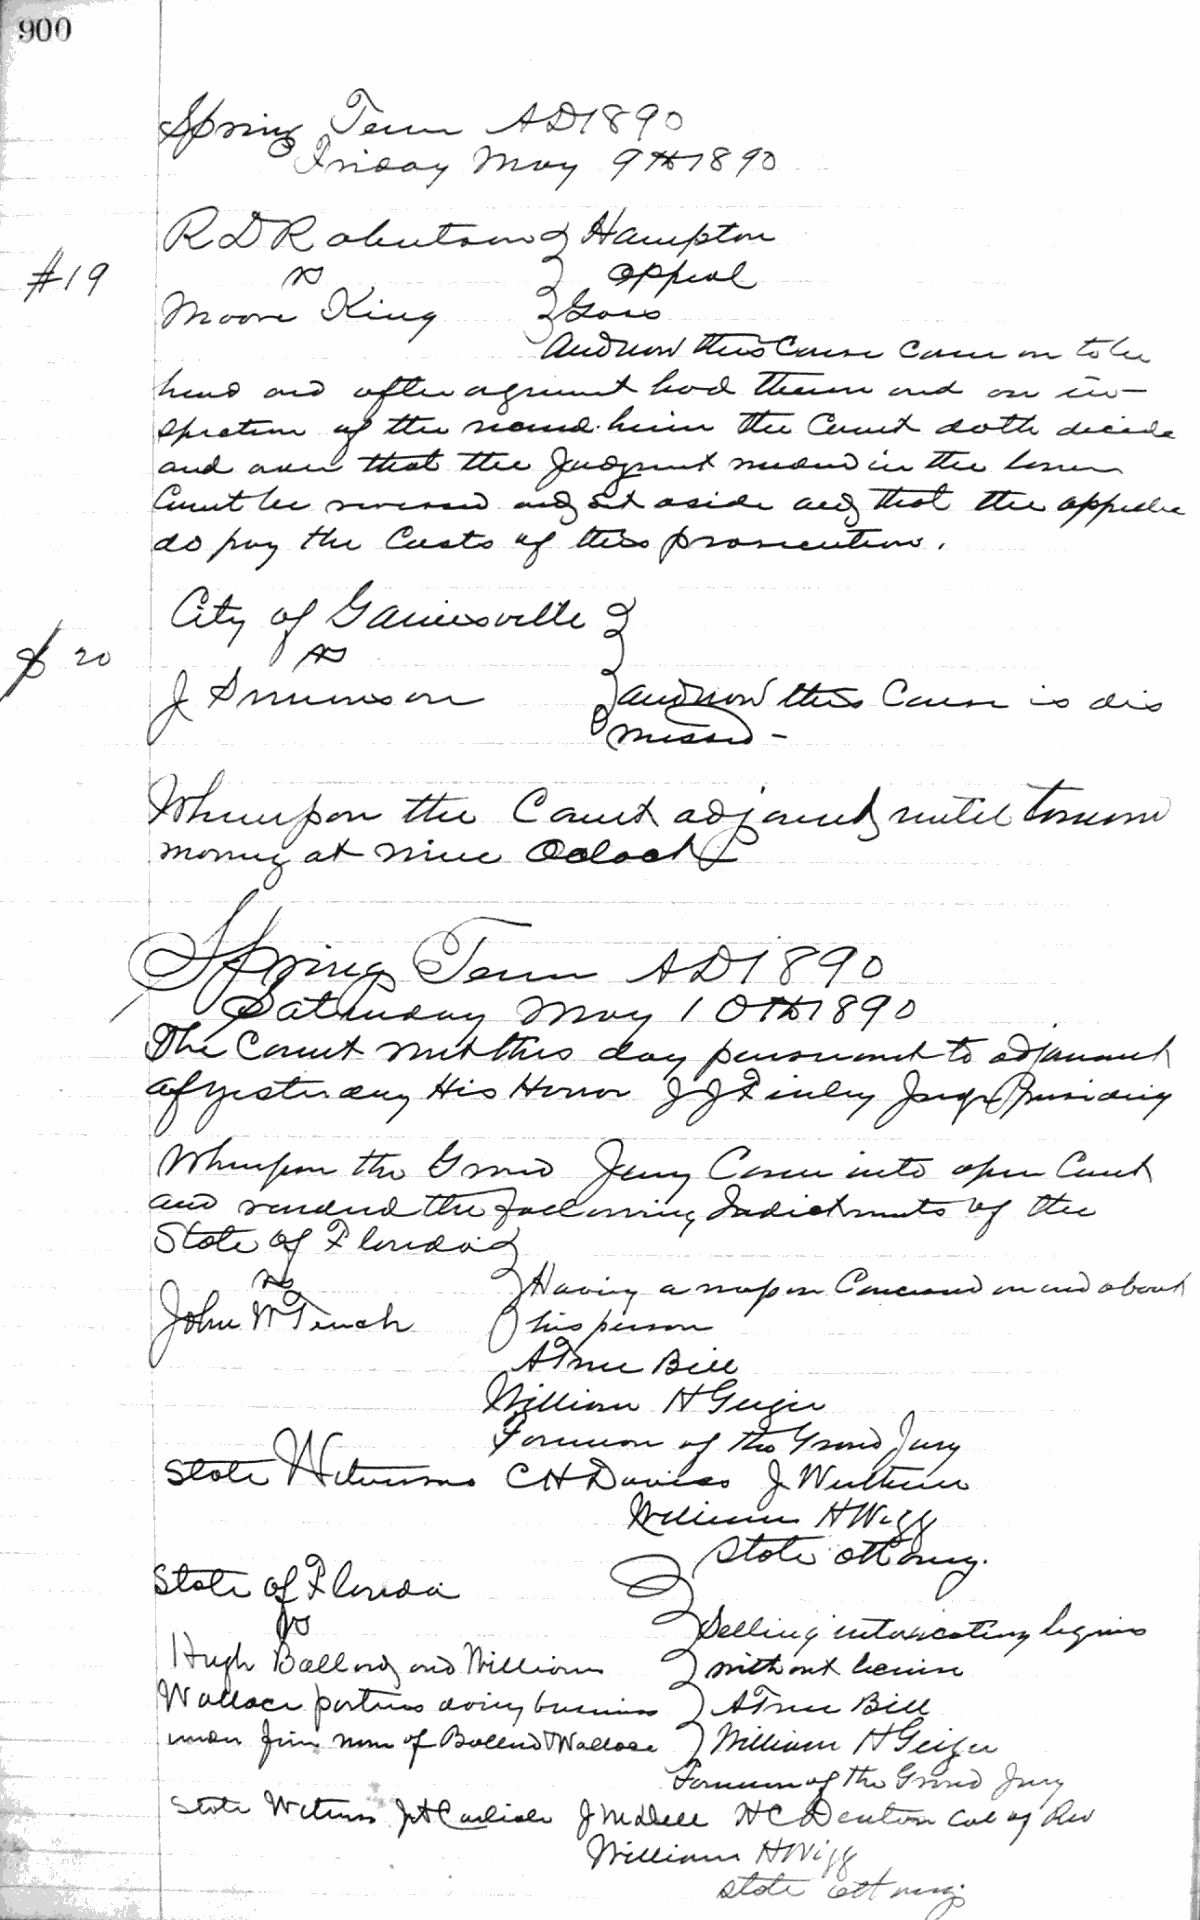 900
Spring Term AD1890
Friday May 9th 1890
R D Robertson Hampton
#19
vs appeal
Moore King Goss
And now this Cause came on to be
heard and after agrument had therein and on in-
spection of the record herein the Court doth decide
and that the Judgment in the lower
Court be reversed and set aside and that the appellee
do pay the Costs of this prosecution.
City of Gainesville
20
vs
J Simonson and now this Cause is dis
missed -
Whereupon the Court adjourned until tomorrow
morning at nine Oclock
Spring Term AD1890
Saturday May 10th 1890
The Court met this day pursuant to adjournment
of yesterday His Honor J J Finley Judge Presiding
Whereupon the Grand Jury Came into open Court
and rendered the following Indictments of the
State of Florida
vs Having a weapon Concealed on and about
John W Tench his person
A True Bill
William H Geiger
Foreman of the Grand Jury
State Witnesses C H Davies J
William H Wigg
State attorney.
State of Florida
vs Selling intoxicating liquors
Hugh Ballard and William without license
Wallace partners doing business A True Bill
under firm name of Ballard & Wallace William H Geiger
Foreman of the Grand Jury
State Witness J H Carlisle J H C Denton Col of Rev
William H Wigg
State attorney